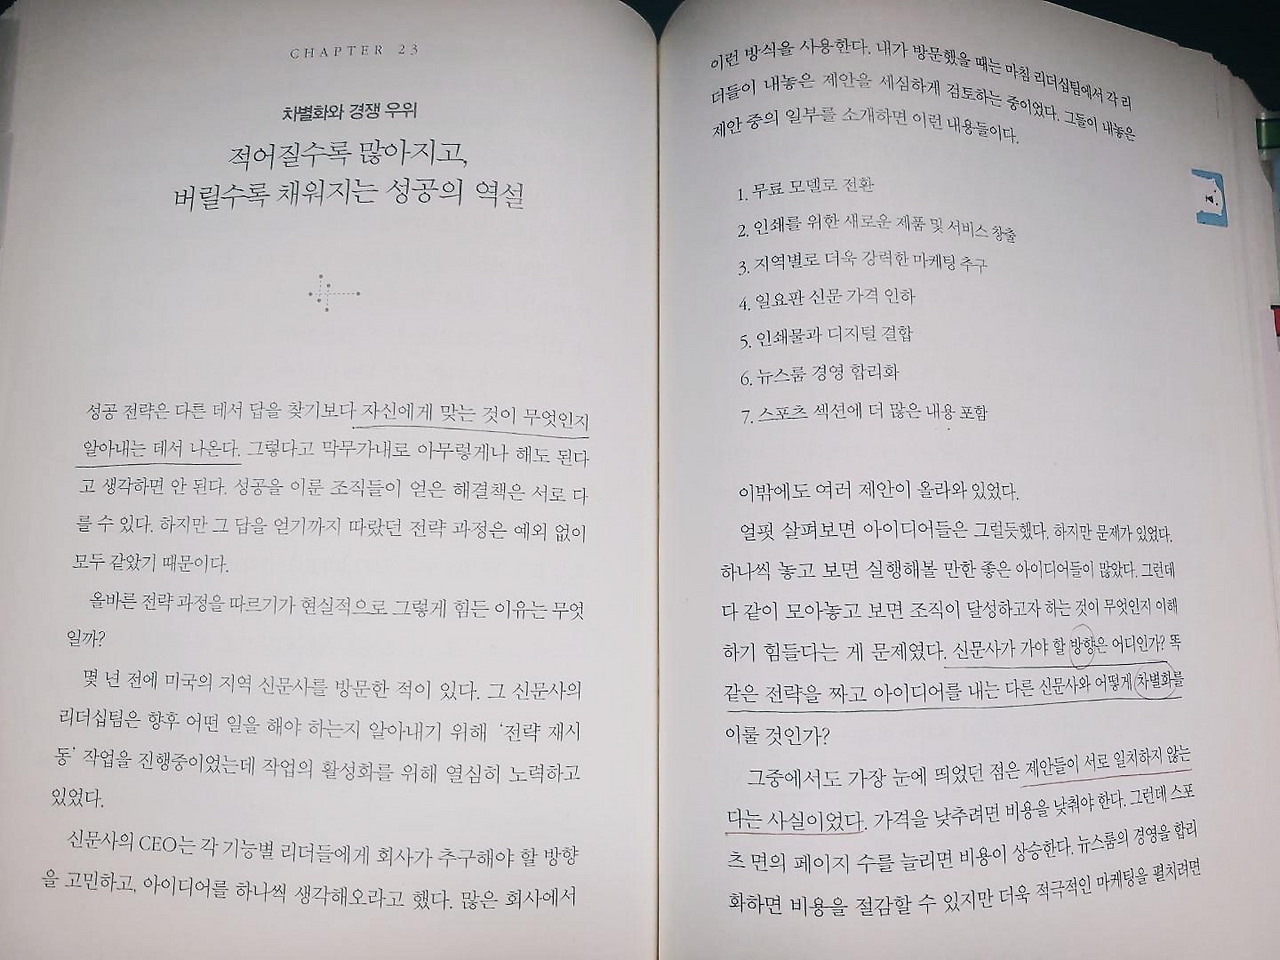 CHAPTER 23
차별화와 경쟁 우위
적어질수록 많아지고,
버릴수록 채워지는 성공의 역설
성공 전략은 다른 데서 답을 찾기보다 자신에게 맞는 것이 무엇인지
알아내는 데서 나온다. 그렇다고 막무가내로 아무렇게나 해도 된다
고 생각하면 안 된다. 성공을 이룬 조직들이 얻은 해결책은 서로 다
를 수 있다. 하지만 그 답을 얻기까지 따랐던 전략 과정은 예외 없이
모두 같았기 때문이다.
올바른 전략 과정을 따르기가 현실적으로 그렇게 힘든 이유는 무엇
일까?
몇 년 전에 미국의 지역 신문사를 방문한 적이 있다. 그 신문사의
리더십팀은 향후 어떤 일을 해야 하는지 알아내기 위해 ‘전략 재시
동’ 작업을 진행중이었는데 작업의 활성화를 위해 열심히 노력하고
있었다.
신문사의 CEO는 각 기능별 리더들에게 회사가 추구해야 할 방향
을 고민하고, 아이디어를 하나씩 생각해오라고 했다. 많은 회사에서
이런 방식을 사용한다. 내가 방문했을 때는 마침 리더십팀에서 각 리
더들이 내놓은 제안을 세심하게 검토하는 중이었다. 그들이 내놓은
제안 중의 일부를 소개하면 이런 내용들이다.
1. 무료 모델로 전환
2. 인쇄를 위한 새로운 제품 및 서비스 창출
3. 지역별로 더욱 강력한 마케팅 추구
4. 일요판 신문 가격 인하
5. 인쇄물과 디지털 결합
6. 뉴스룸 경영 합리화
7. 스포츠 섹션에 더 많은 내용 포함
이밖에도 여러 제안이 올라와 있었다.
얼핏 살펴보면 아이디어들은 그럴듯했다. 하지만 문제가 있었다.
하나씩 놓고 보면 실행해볼 만한 좋은 아이디어들이 많았다. 그런데
다 같이 모아놓고 보면 조직이 달성하고자 하는 것이 무엇인지 이해
하기 힘들다는 게 문제였다. 신문사가 가야 할 방향은 어디인가? 똑
같은 전략을 짜고 아이디어를 내는 다른 신문사와 어떻게 차별화를
이룰 것인가?
그중에서도 가장 눈에 띄었던 점은 제안들이 서로 일치하지 않는
다는 사실이었다. 가격을 낮추려면 비용을 낮춰야 한다. 그런데 스포
츠 면의 페이지 수를 늘리면 비용이 상승한다. 뉴스룸의 경영을 합리
화하면 비용을 절감할 수 있지만 더욱 적극적인 마케팅을 펼치려면